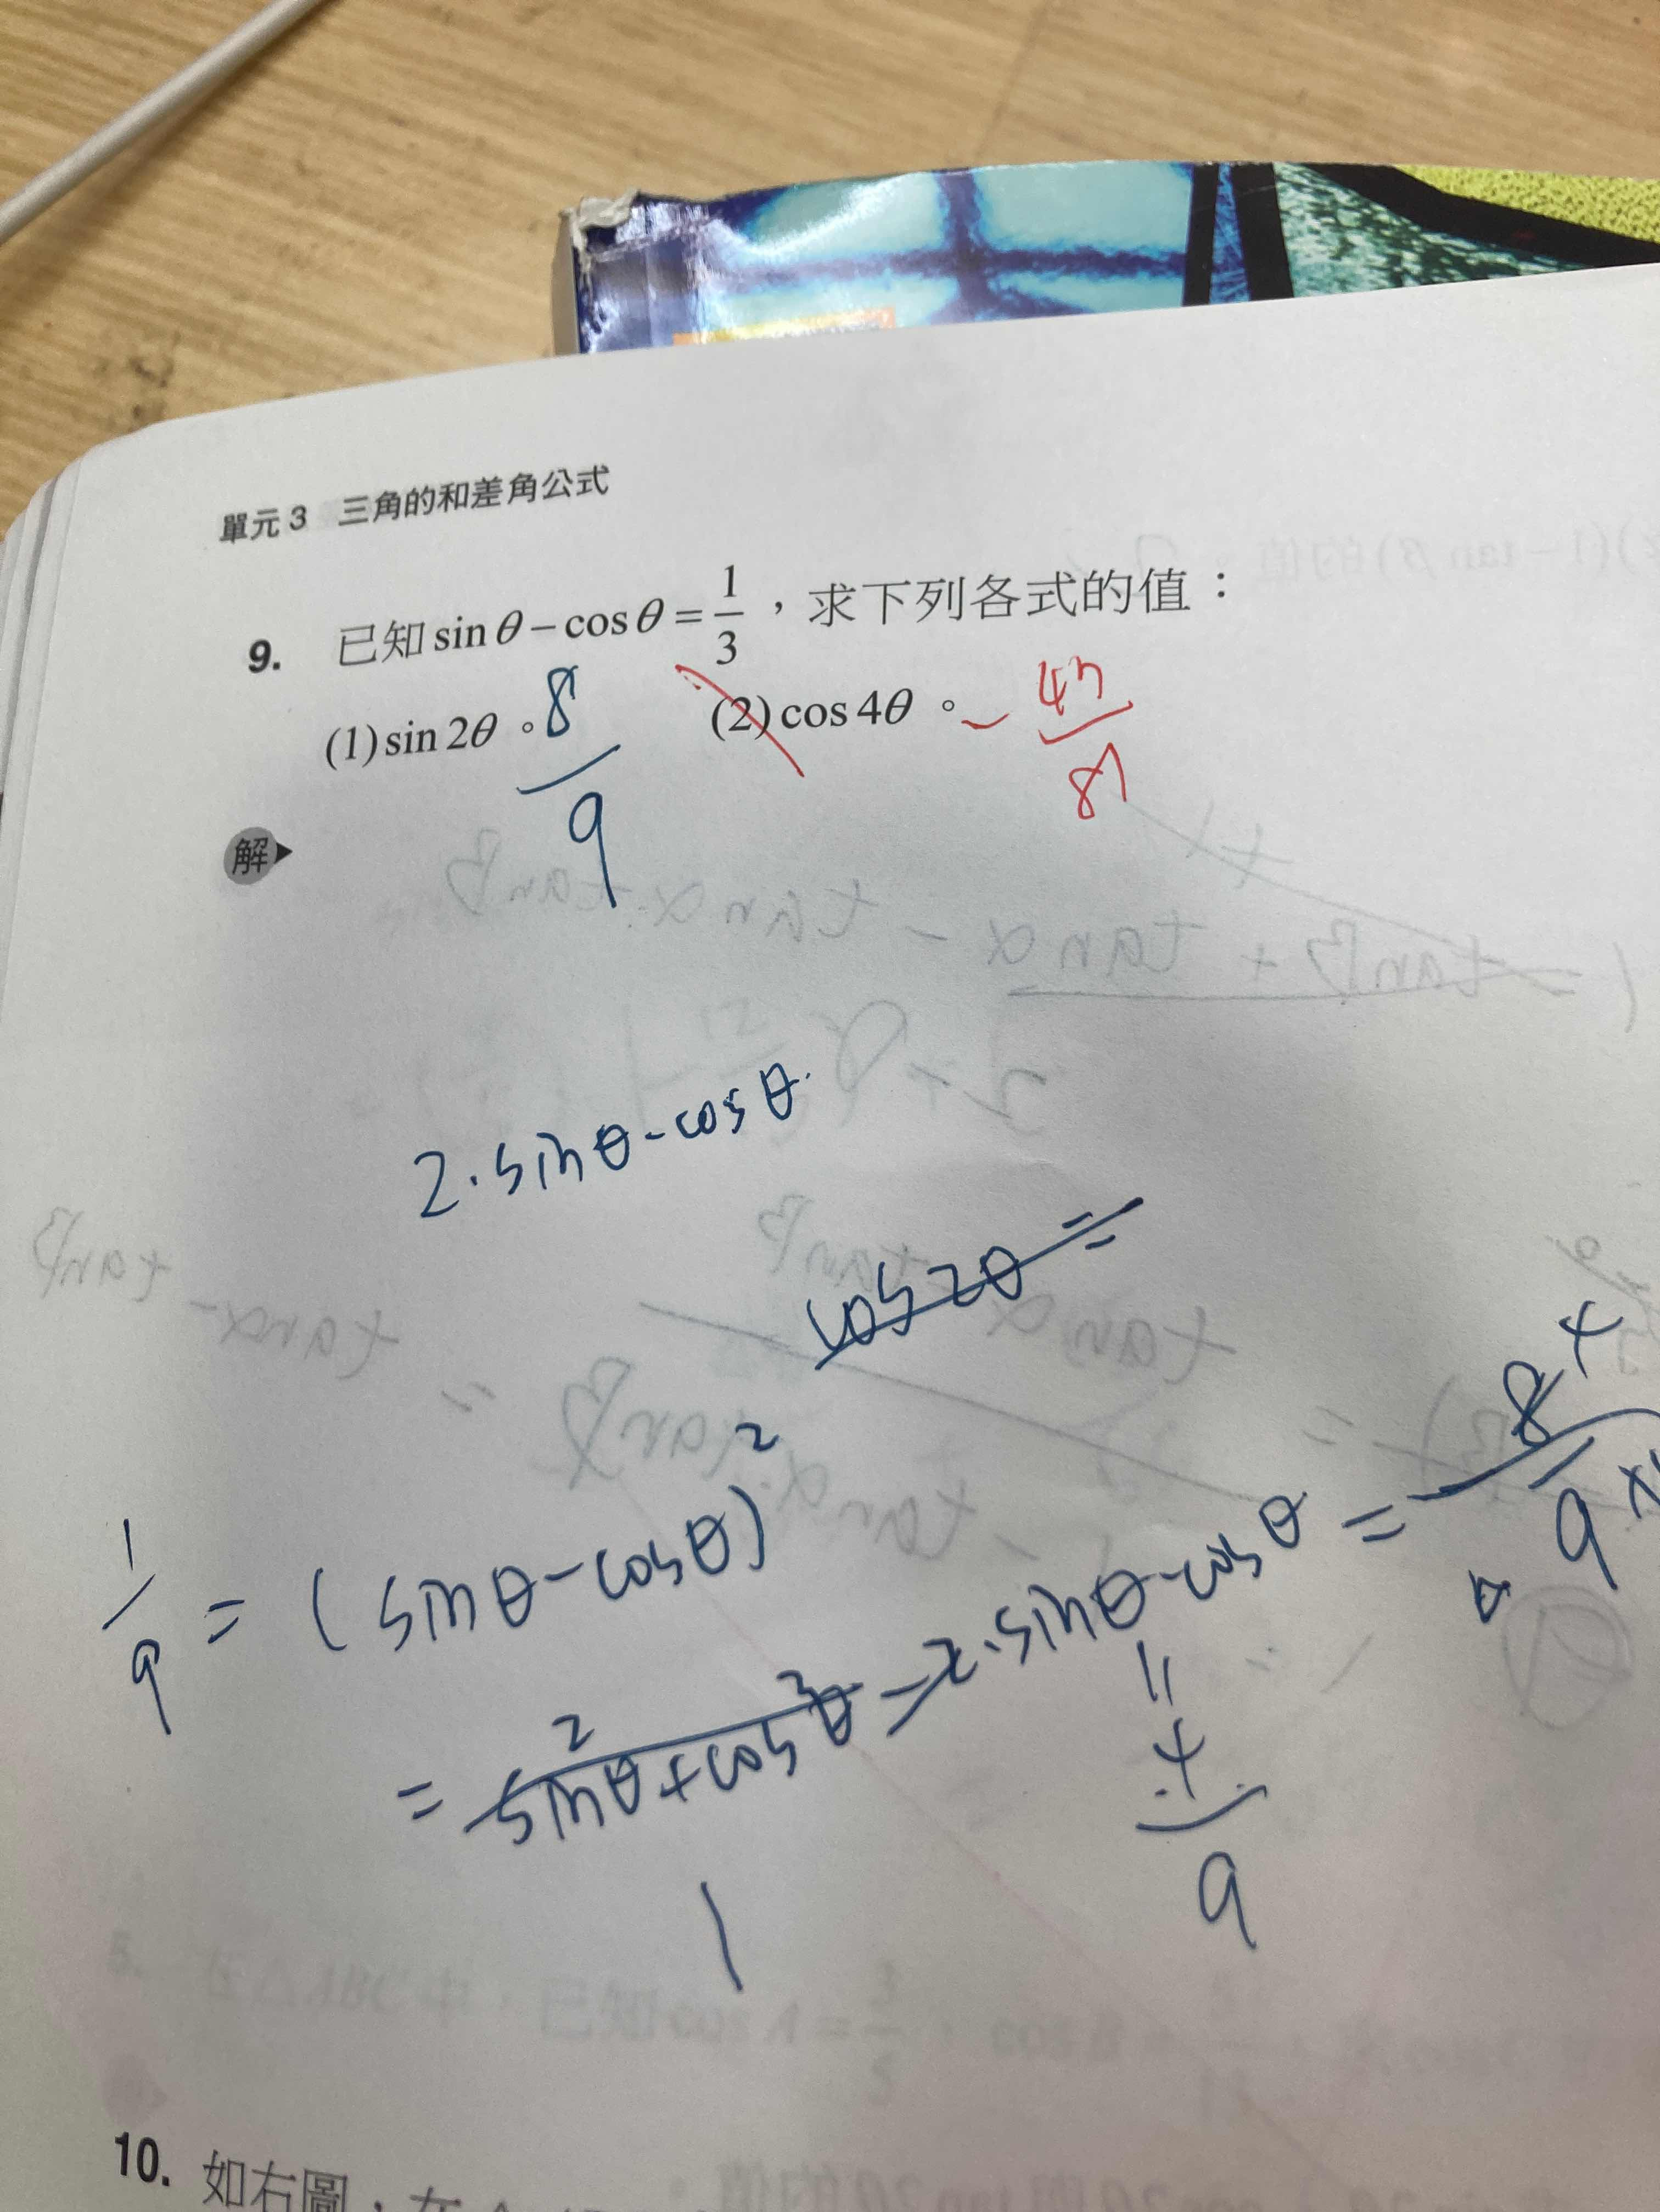 單元3 三角的和差角公式
9. 已知 sin θ − cos θ = 1/3 ，求下列各式的值：
(1) sin 2θ 。 8/9 (2) cos 4θ 。 − 47/81
解
2·sinθ-cosθ
cos2θ =
1/9 = (sinθ-cosθ)²
= sin²θ+cos²θ - 2·sinθ-cosθ = 8/9
1
4/9
10. 如右圖，在